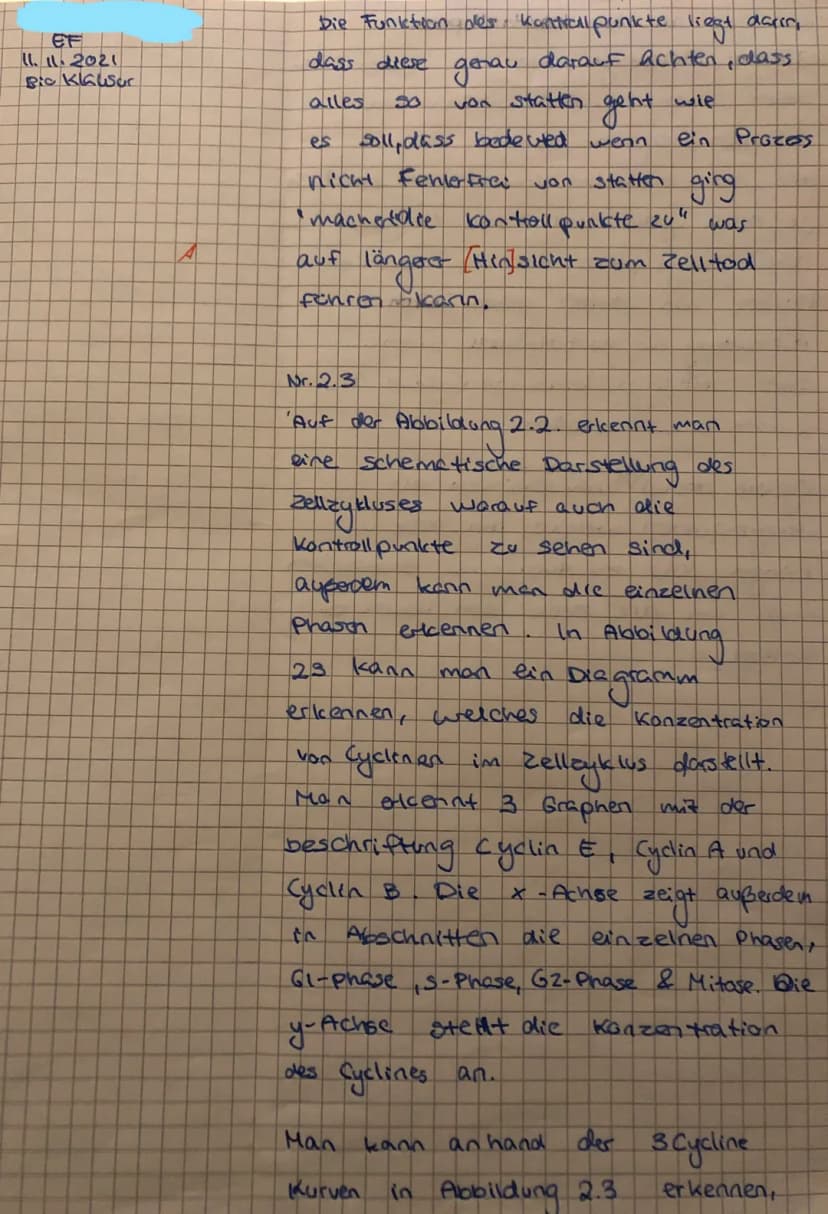 EF
11.11.2021
Bio Klausur
Die Funktion der Kontrollpunkte liegt darin,
dass diese genau darauf achten, dass
alles so von statten geht wie
es soll, dass bedeuted wenn ein Prozess
nicht Fehlerfrei von statten ging
"machen die Kontrollpunkte zu" was
A
auf längerer [Hin]sicht zum Zelltod
führen kann.
Nr. 2.3
Auf der Abbildung 2.2. erkennt man
eine schematische Darstellung des
Zellzykluses worauf auch die
Kontrollpunkte zu sehen sind,
außerdem kann man die einzelnen
Phasen erkennen. In Abbildung
23 kann man ein Diagramm
erkennen, welches die Konzentration
von Cyclinen im Zellzyklus darstellt.
Man erkennt 3 Graphen mit der
beschriftung Cyclin E, Cyclin A und
Cyclin B. Die x-Achse zeigt außerdem
in Abschnitten die einzelnen Phasen,
G1-phase, S-Phase, G2-Phase & Mitose. Die
y-Achse stellt die Konzentration
des Cyclines an.
Man kann anhand der 3 Cycline
Kurven in Abbildung 2.3 erkennen,